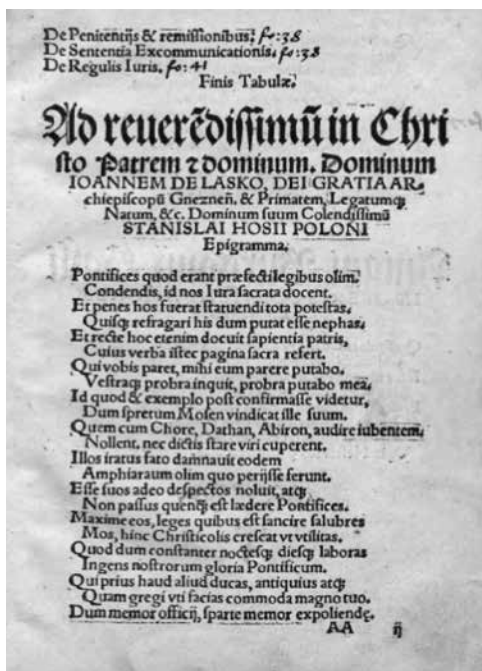 De Penitentijs & remissionibus. fo: 38
De Sententia Excommunicationis. fo: 38
De Regulis Iuris. fo: 41
Finis Tabulæ.
Ad reuerẽdissimũ in Chri
sto Patrem ⁊ dominum. Dominum
IOANNEM DE LASKO, DEI GRATIA AR-
chiepiscopũ Gneznen̄. & Primatem, Legatumq;
Natum, &c. Dominum suum Colendissimũ
STANISLAI HOSII POLONI
Epigramma.
Pontifices quod erant præfecti legibus olim
Condendis, id nos Iura sacrata docent.
Et penes hos fuerat statuendi tota potestas,
Quisq; refragari his dum putat esse nephas.
Et recte hoc etenim docuit sapientia patris,
Cuius verba istec pagina sacra refert.
Qui vobis paret, mihi eum parere putabo.
Vestraq; probra inquit, probra putabo mea.
Id quod & exemplo post confirmasse videtur,
Dum spretum Mosen vindicat ille suum.
Quem cum Chore, Dathan, Abiron, audire iubentem,
Nollent, nec dictis stare viri cuperent.
Illos iratus fato damnauit eodem
Amphiaraum olim quo perijsse ferunt.
Esse suos adeo despectos noluit, atq;
Non passus quenq; est lædere Pontifices.
Maxime eos, leges quibus est sancire salubres
Mos, hinc Christicolis crescat vt vtilitas.
Quod dum constanter noctesq; diesq; laboras
Ingens nostrorum gloria Pontificum.
Qui prius haud aliud ducas, antiquius atq;
Quam gregi vti facias commoda magno tuo.
Dum memor officij, sparte memor expoliendę.
AA ij